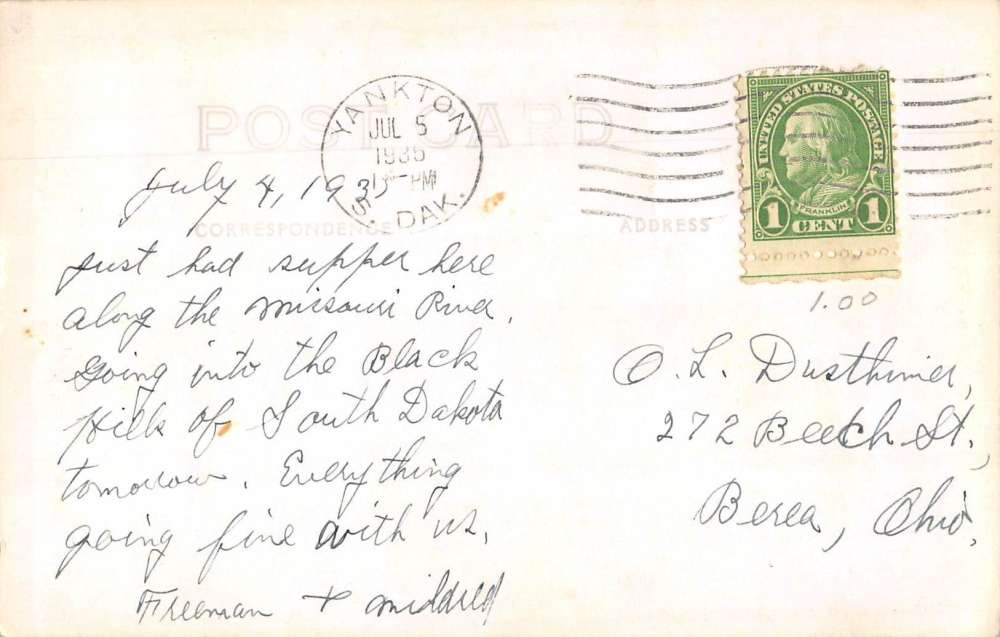 POST CARD
YANKTON
JUL 5
1935
PM
S. DAK.
UNITED STATES POSTAGE
FRANKLIN
1 CENT 1
1.00
CORRESPONDENCE
ADDRESS
July 4, 1935
Just had supper here
along the Missouri River.
Going into the Black
Hills of South Dakota
tomorrow. Everything
going fine with us.
Freeman + Mildred
O. L. Dusthimer,
272 Beech St.,
Berea, Ohio.